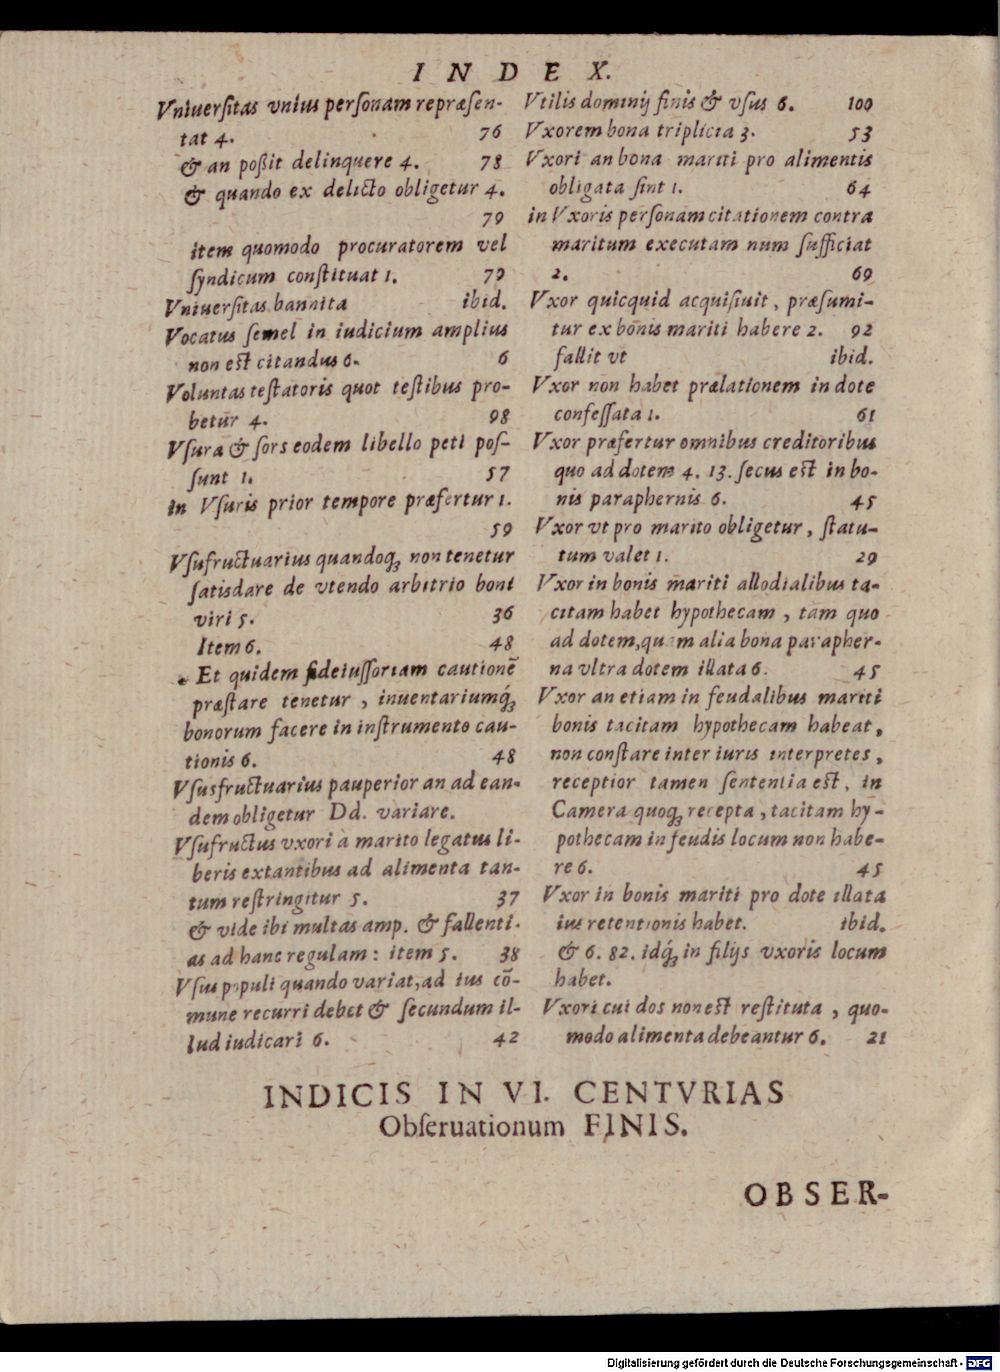 INDEX.
Vniuerſitas vnius perſonam repræſen-
tat 4. 76
& an poßit delinquere 4. 78
& quando ex delicto obligetur 4.
79
item quomodo procuratorem vel
ſyndicum conſtituat 1. 79
Vniuerſitas bannita ibid.
Vocatus ſemel in iudicium amplius
non est citandus 6. 6
Voluntas teſtatoris quot teſtibus pro-
betur 4. 98
Vſura & ſors eodem libello peti poſ-
ſunt 1. 57
in Vſuris prior tempore præfertur 1.
59
Vſufructuarius quandoq; non tenetur
ſatisdare de vtendo arbitrio boni
viri 5. 36
Item 6. 48
Et quidem fideiuſſoriam cautionẽ
præſtare tenetur, inuentariumq́;
bonorum facere in inſtrumento cau-
tionis 6. 48
Vſusfructuarius pauperior an ad ean-
dem obligetur Dd. variare.
Vſufructus vxori à marito legatus li-
beris extantibus ad alimenta tan-
tum reſtringitur 5. 37
& vide ibi multas amp. & fallenti-
as ad hanc regulam: item 5. 38
Vſus populi quando variat, ad ius cõ-
mune recurri debet & ſecundum il-
lud iudicari 6. 42
Vtilis dominij finis & vſus 6. 100
Vxorem bona triplicia 3. 53
Vxori an bona mariti pro alimentis
obligata ſint 1. 64
in Vxoris perſonam citationem contra
maritum executam num ſufficiat
2. 69
Vxor quicquid acquiſiuit, præſumi-
tur ex bonis mariti habere 2. 92
fallit vt ibid.
Vxor non habet prælationem in dote
confeſſata 1. 61
Vxor præfertur omnibus creditoribus
quo ad dotem 4. 13. ſecus est in bo-
nis paraphernis 6. 45
Vxor vt pro marito obligetur, ſtatu-
tum valet 1. 29
Vxor in bonis mariti allodialibus ta-
citam habet hypothecam, tam quo
ad dotem, quam alia bona parapher-
na vltra dotem illata 6. 45
Vxor an etiam in feudalibus mariti
bonis tacitam hypothecam habeat,
non conſtare inter iuris interpretes,
receptior tamen ſententia est, in
Camera quoq; recepta, tacitam hy-
pothecam in feudis locum non habe-
re 6. 45
Vxor in bonis mariti pro dote illata
ius retentionis habet. ibid.
& 6. 82. idq́; in filijs vxoris locum
habet.
Vxori cui dos non est reſtituta, quo-
modo alimenta debeantur 6. 21
INDICIS IN VI. CENTVRIAS
Obſeruationum FINIS.
OBSER-
Digitalisierung gefördert durch die Deutsche Forschungsgemeinschaft - DFG